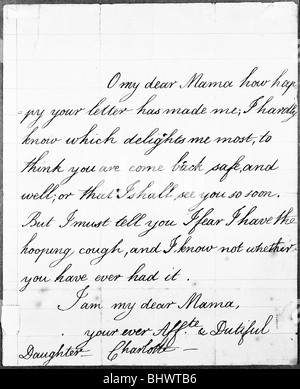 O my dear Mama how hap-
-py your letter has made me; I hardly
know which delights me most, to
think you are come back safe, and
well; or that I shall see you so soon.
But I must tell you I fear I have the
hooping cough, and I know not whether
you have ever had it.
I am my dear Mama,
your ever Affte & Dutiful
Daughter Charlotte
alamy
BHWTB6
www.alamy.com